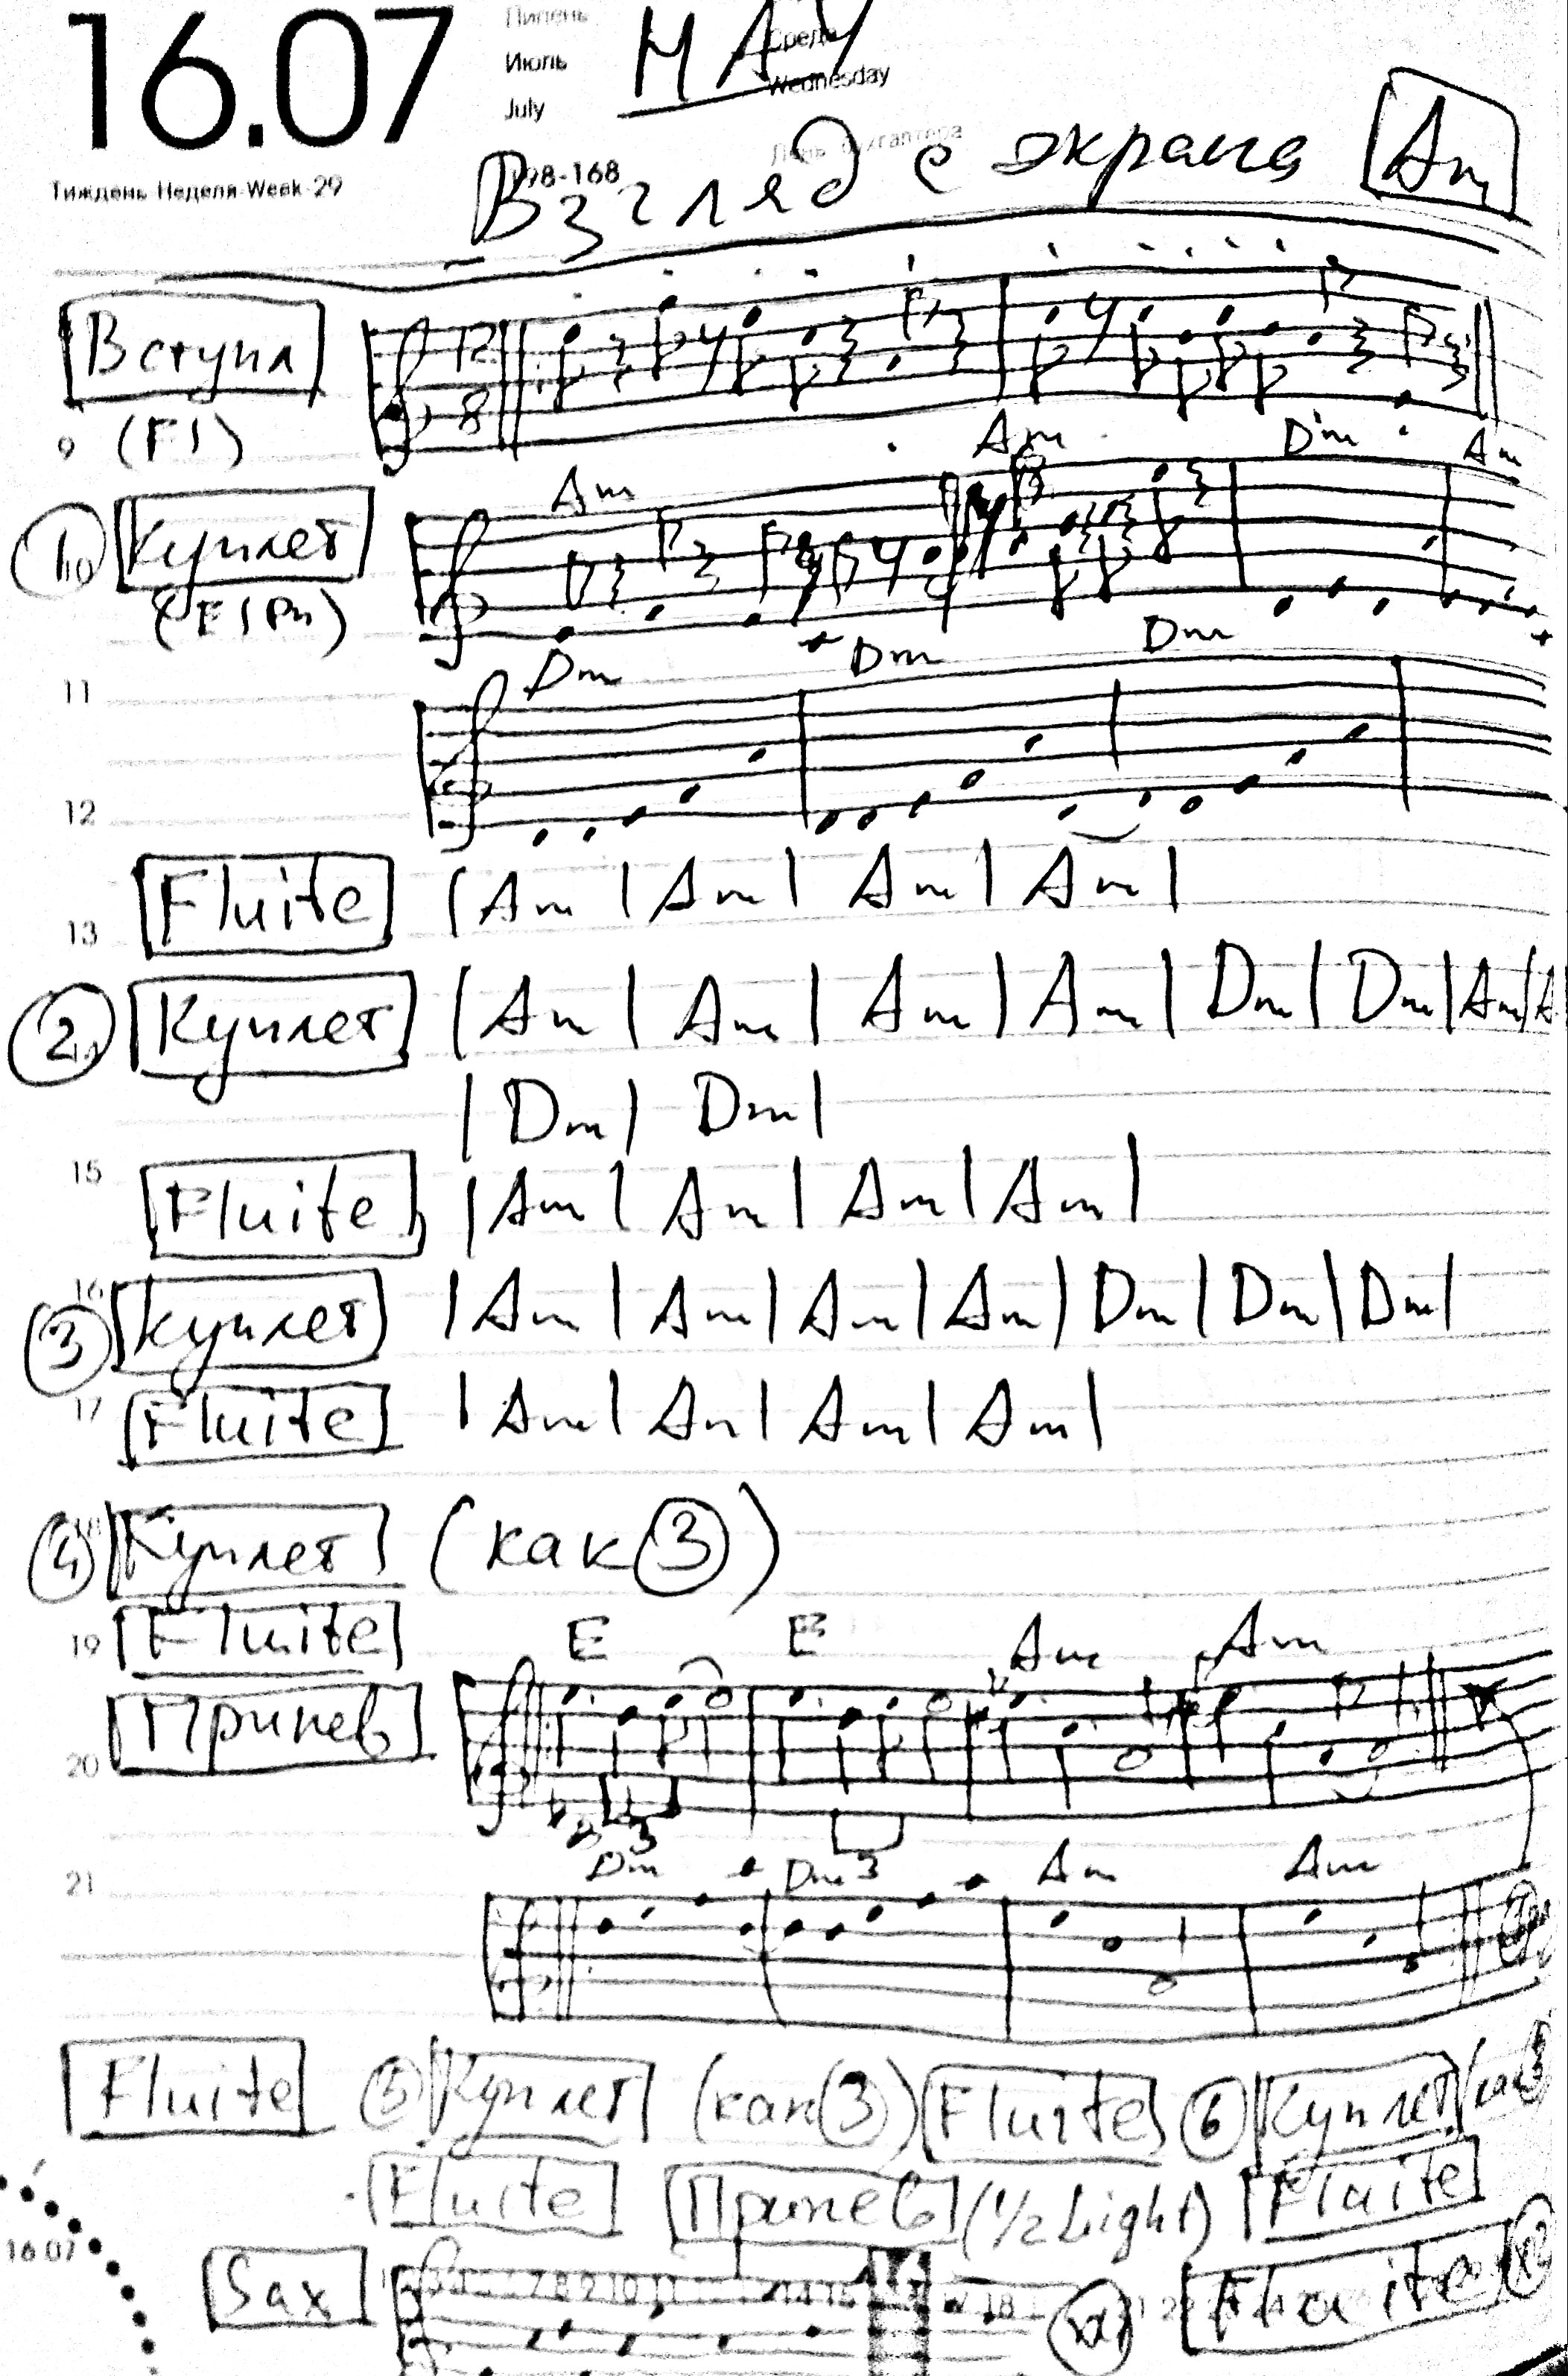 16.07
Липень
Июль
July
Среда
Wednesday
НАУ
Тиждень Неделя Week 29
198-168
Взгляд с экрана Am
Вступл 12 8
9 (Fl)
Am Am Dm Am
1. Куплет
11
Dm Dm Dm
12
13 Fluite | Am | Am | Am | Am |
2. Куплет | Am | Am | Am | Am | Dm | Dm | Am | A
| Dm | Dm |
15
Fluite | Am | Am | Am | Am |
16
3 Куплет | Am | Am | Am | Am | Dm | Dm | Dm |
17 Fluite | Am | Am | Am | Am |
4 Куплет (как 3)
19 Fluite
E E Am Am
20 Припев
3
21
Dm Dm 3 Am Am
Fluite 5 Куплет (как 3) Fluite 6 Куплет (как 3
Fluite Припев (1/2 Light) Fluite
16 07
Sax Fluite